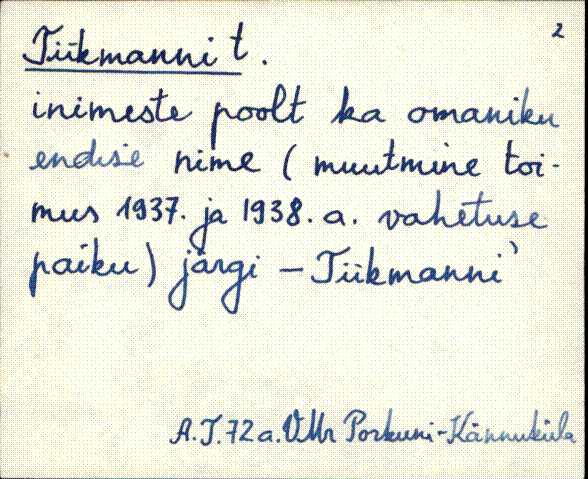 2
Tiikmanni t.
inimeste poolt ka omaniku
endise nime ( muutmine toi-
mus 1937. ja 1938. a. vahetuse
paiku) järgi – Tiikmanni’
A.J. 72 a. VMr Porkuni-Kännuküla